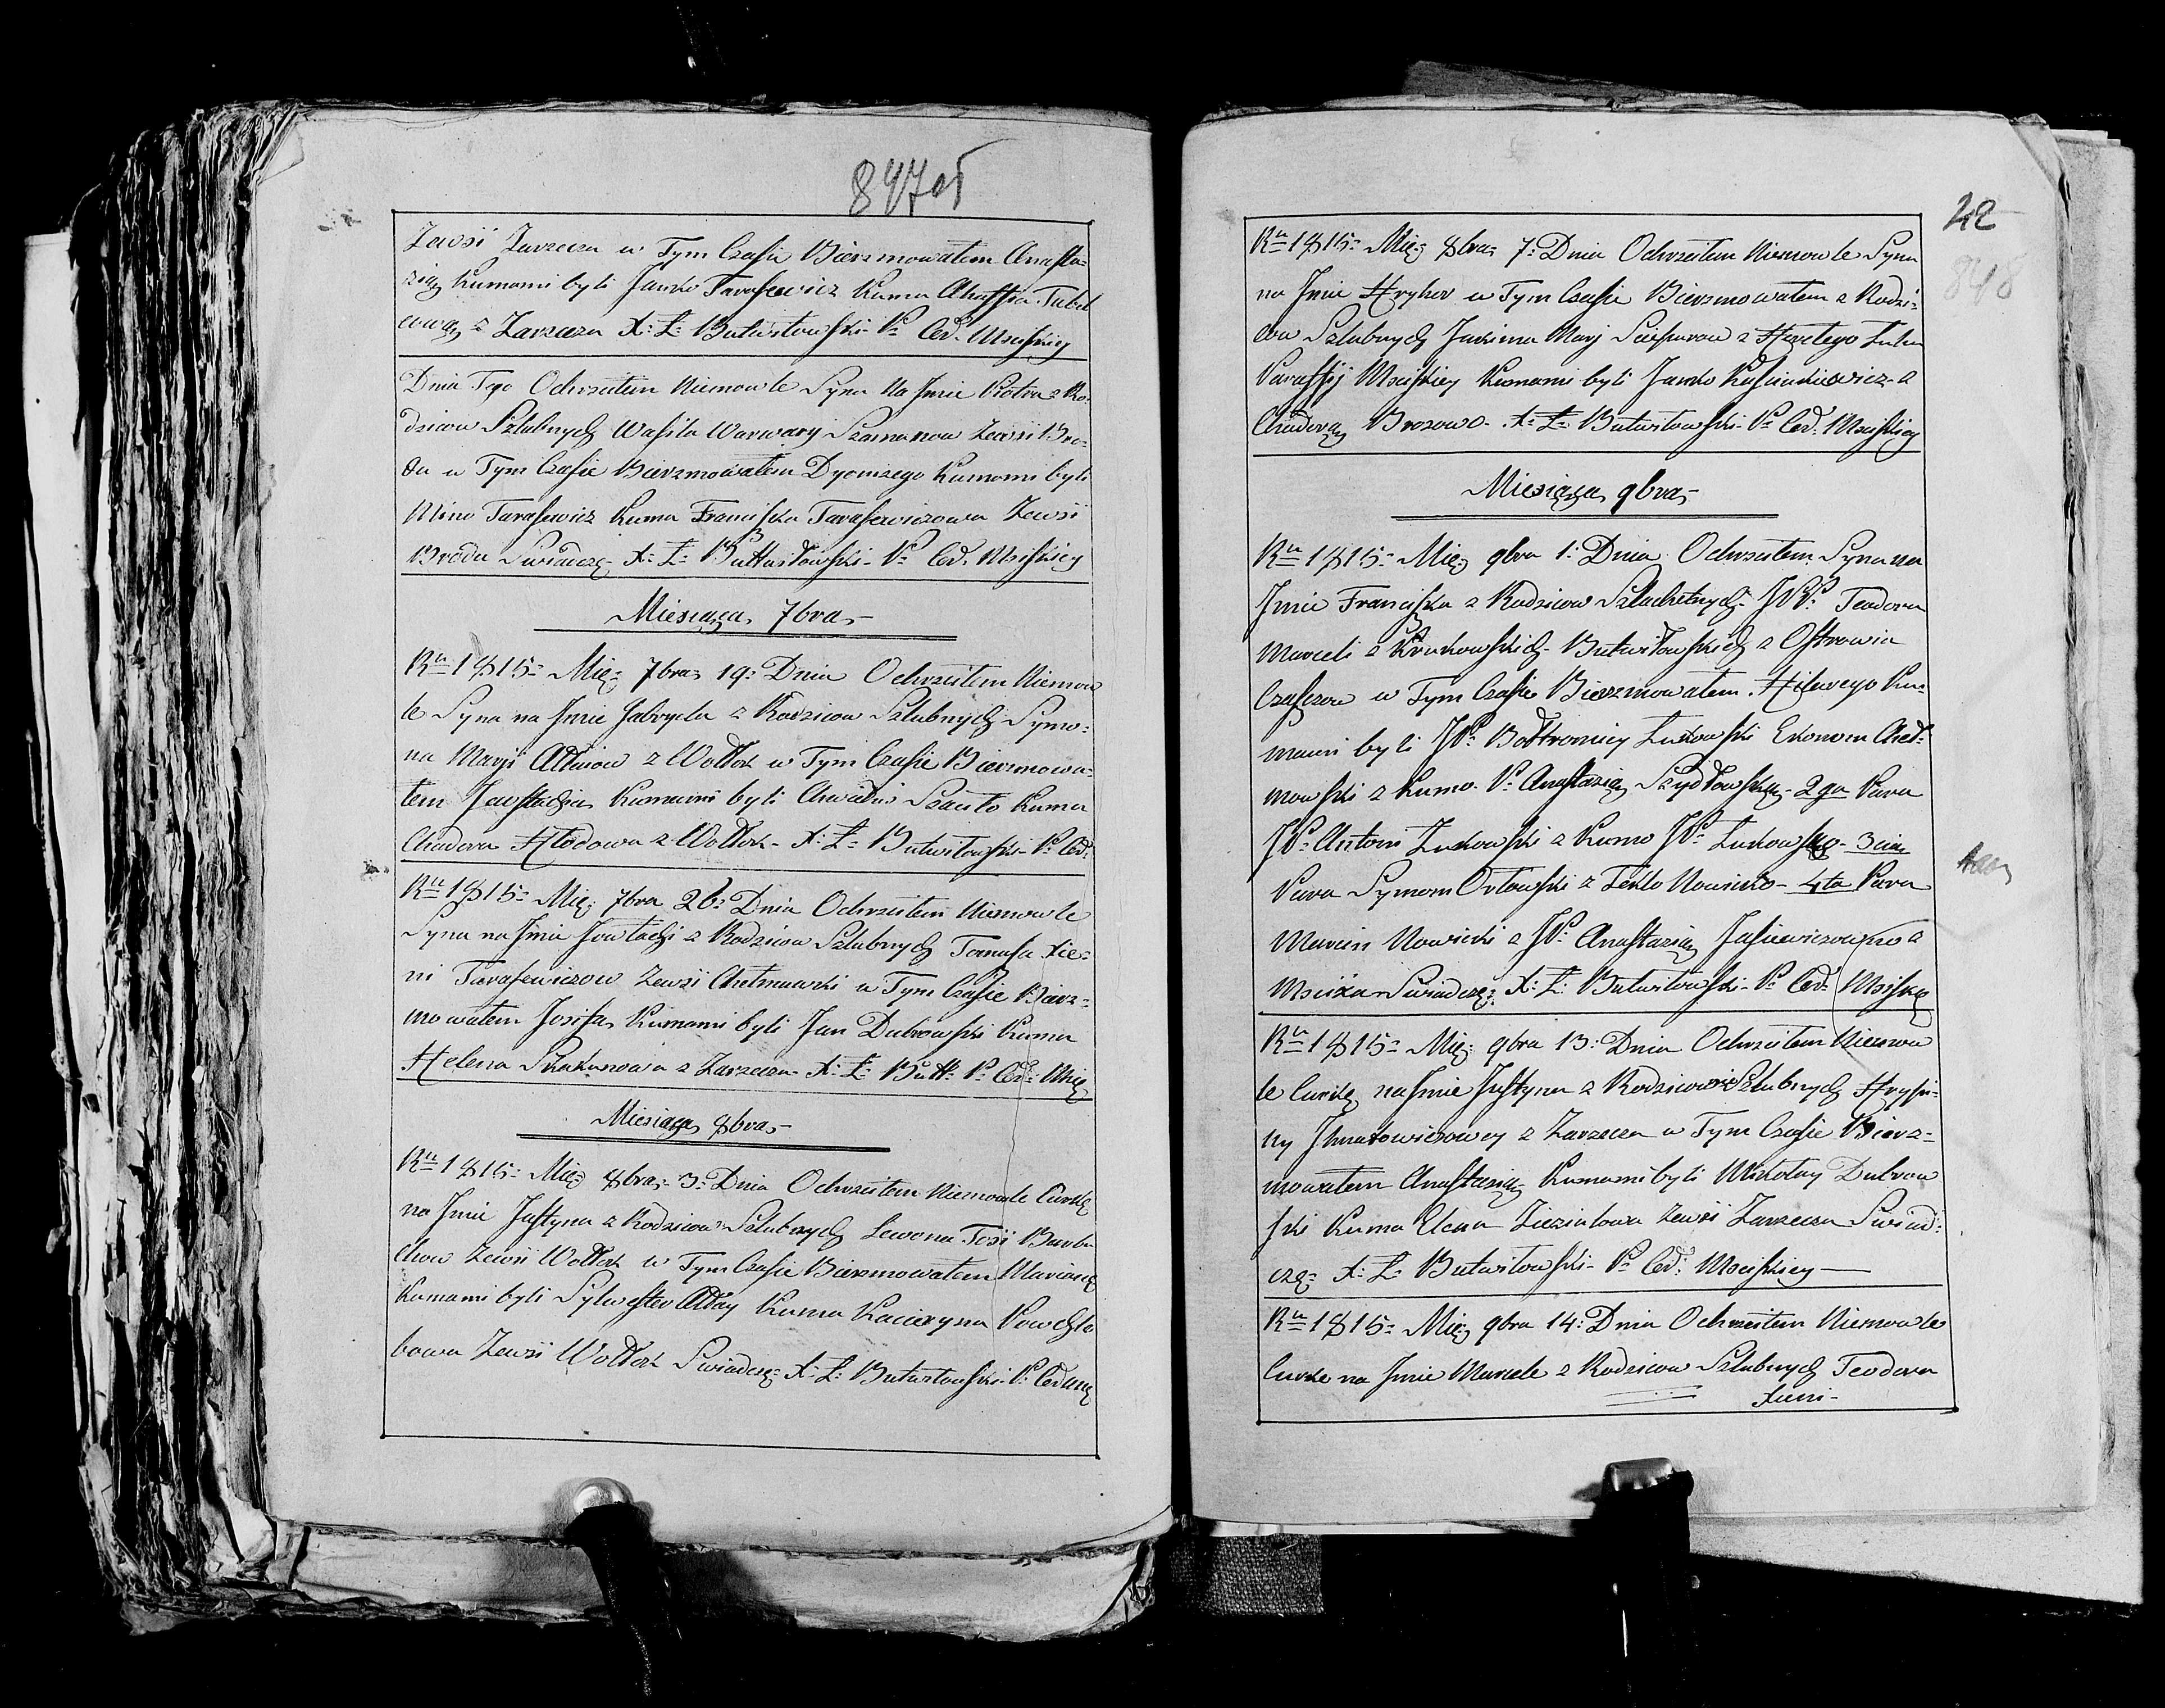 847об
Zewsi Zarzecza w Tym Czasie Bierzmowałem Anasta=
zią Kumami byli Janko Tarasewicz Kuma Ahaffia
ową z Zarzecza X: Ł: Butwiłowski P: Cer: Msciskiey
Dnia Tego Ochrzciłem Niemowle Syna Na Jmie Piotra z Ro=
dzicow Szlubnych Wasila Warwary Szamanow Zewsi Bro=
du w Tym Czasie Bierzmowałem Dyonizego Kumami byli
Mino Tarasewicz Kuma Franciszka Tarasewiczowa Zewsi
Brodu Swiadczę X: Ł: Buttwiłowski P: Cer: Msciskiey
Miesiąca 7bra
Ru 1815 Mię: 7bra 19: Dnia Ochrzciłem Niemow
le Syna na Jmie Gabryela z Rodzicow Szlubnych Symo=
na Maryi Ałłaiow z Wołłok w Tym Czasie Bierzmowa=
łem Jewstachia Kumami byli Szauło Kuma
Chodora Hłodowa z Wołłok X: Ł: Butwiłowski P: Cer:
Ru 1815 Mię: 7bra 26: Dnia Ochrzciłem Niemowle
Syna na Jmie Jowtachi z Rodzicow Szlubnych Tomasza Xie=
ni Tarasewiczow Zewsi w Tym Czasie Bierz=
mowałem Josifa Kumami byli Jan Dubrowski Kuma
Helena z Zarzecza X: Ł: Butt: P: Cer: Mście
Miesiąca 8bra
Ru 1815 Mię: 8bra 3: Dnia Ochrzciłem Niemowle Curkę
na Jmie Justyna z Rodzicow Szlubnych Lewona Tosi Barba
chow Zewsi Wołłok w Tym Czasie Bierzmowałem Marianę
Kumami byli Sylwester Ałłay Kuma Kacieryna
bowa Zewsi Wołłok Swiadczę X: Ł: Butwiłowski P: Cer
42
848
Ru 1815 Mię: 8bra 7: Dnia Ochrzciłem Niemowle Syna
na Jmie Hryhor w Tym Czasie Bierzmowałem z Rodzi=
cow Szlubnych Jachima Maryi z
Paraffij Msciskiey Kumami byli Janko z
Chodorą Brozowo X: Ł: Butwiłowski P: Cer: Msciskiey
Miesiąca 9bra
Ru 1815 Mię: 9bra 1: Dnia Ochrzciłem Syna na
Jmie Franciszka z Rodzicow Szlachetnych JPP: Teodora
Marceli z Krukowskich Butwiłowskich z Ostrowia
w Tym Czasie Bierzmowałem Hilarego Ku=
mami byli JP: Bołtromiey Żukowski Ekonom Cheł=
mowski z Kumo P: Anastazią Szydłowską 2ga Para
JP: Antoni Żukowski z Kumo JP: Żukowską 3cia
Para Symon Orłowski z Teklo Nowicko 4ta Para
Marcin Nowicki z JP: Anastazią Jasiewiczowno z
Mscisza Swiadczę: X: Ł: Butwiłowski P: Cer: Msciskey
Ru 1815 Mię: 9bra 13: Dnia Ochrzciłem Niemow
le Curkę na Jmie Justyna z Rodzicow Szlubnych Hrypi=
ny Jhnatowiczowey z Zarzecza w Tym Czasie Bierz=
mowałem Anastazią Kumami byli Mikołay Dubrow
ski Kuma Elena Zewsi Zarzecza Swiad=
czę: X: Ł: Butwiłowski P: Cer: Msciskiey
Ru 1815 Mię: 9bra 14: Dnia Ochrzciłem Niemowle
Curke na Jmie Marcele z Rodzicow Szlubnych Teodora
Xieni